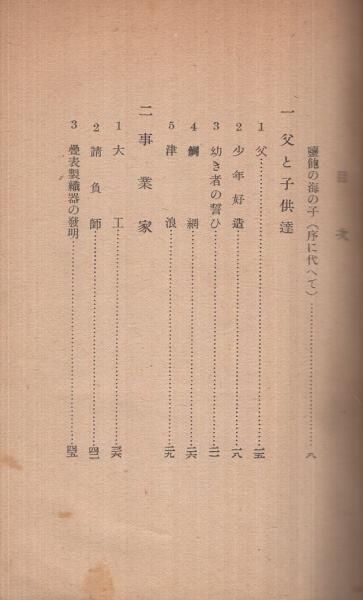 目次
鹽飽の海の子（序に代へて）……八
一 父と子供達
1 父……一五
2 少年好造……一八
3 幼き者の誓ひ……二一
4 鯛網……二六
5 津浪……二九
二 事業家
1 大工……三六
2 請負師……四一
3 疊表製織器の發明……四五